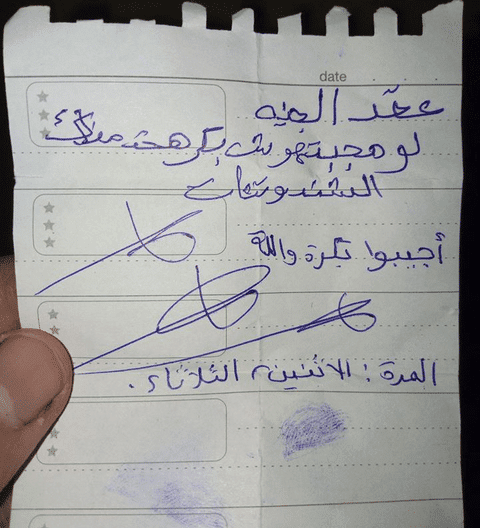 date
عقد الجنيه
لو مجبتهوش بكره هتدملك
البشندوتشات
أجيبوا بكرة والله
المدة : الاثنين، الثلاثاء.